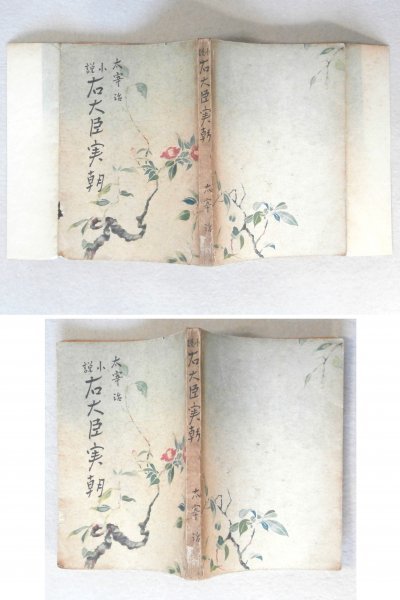 太宰治
小説
右大臣実朝
小説 右大臣実朝 太宰治
太宰治
小説
右大臣実朝
小説 右大臣実朝 太宰治